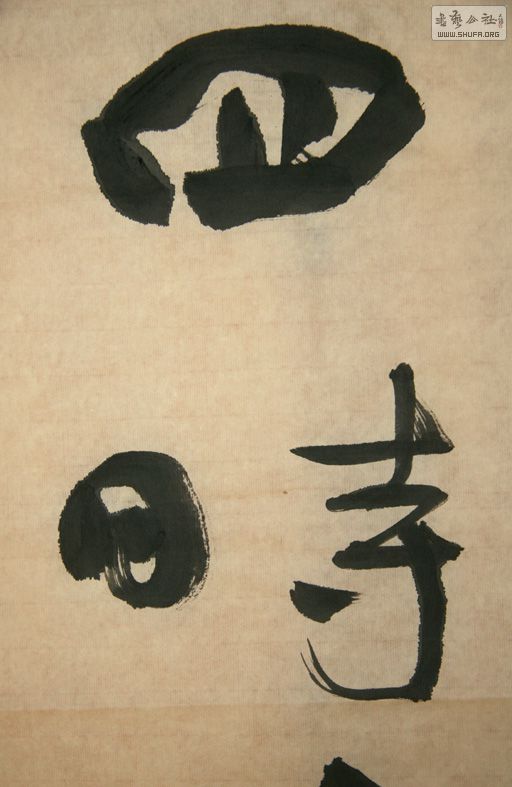 四時
書藝公社
WWW.SHUFA.ORG